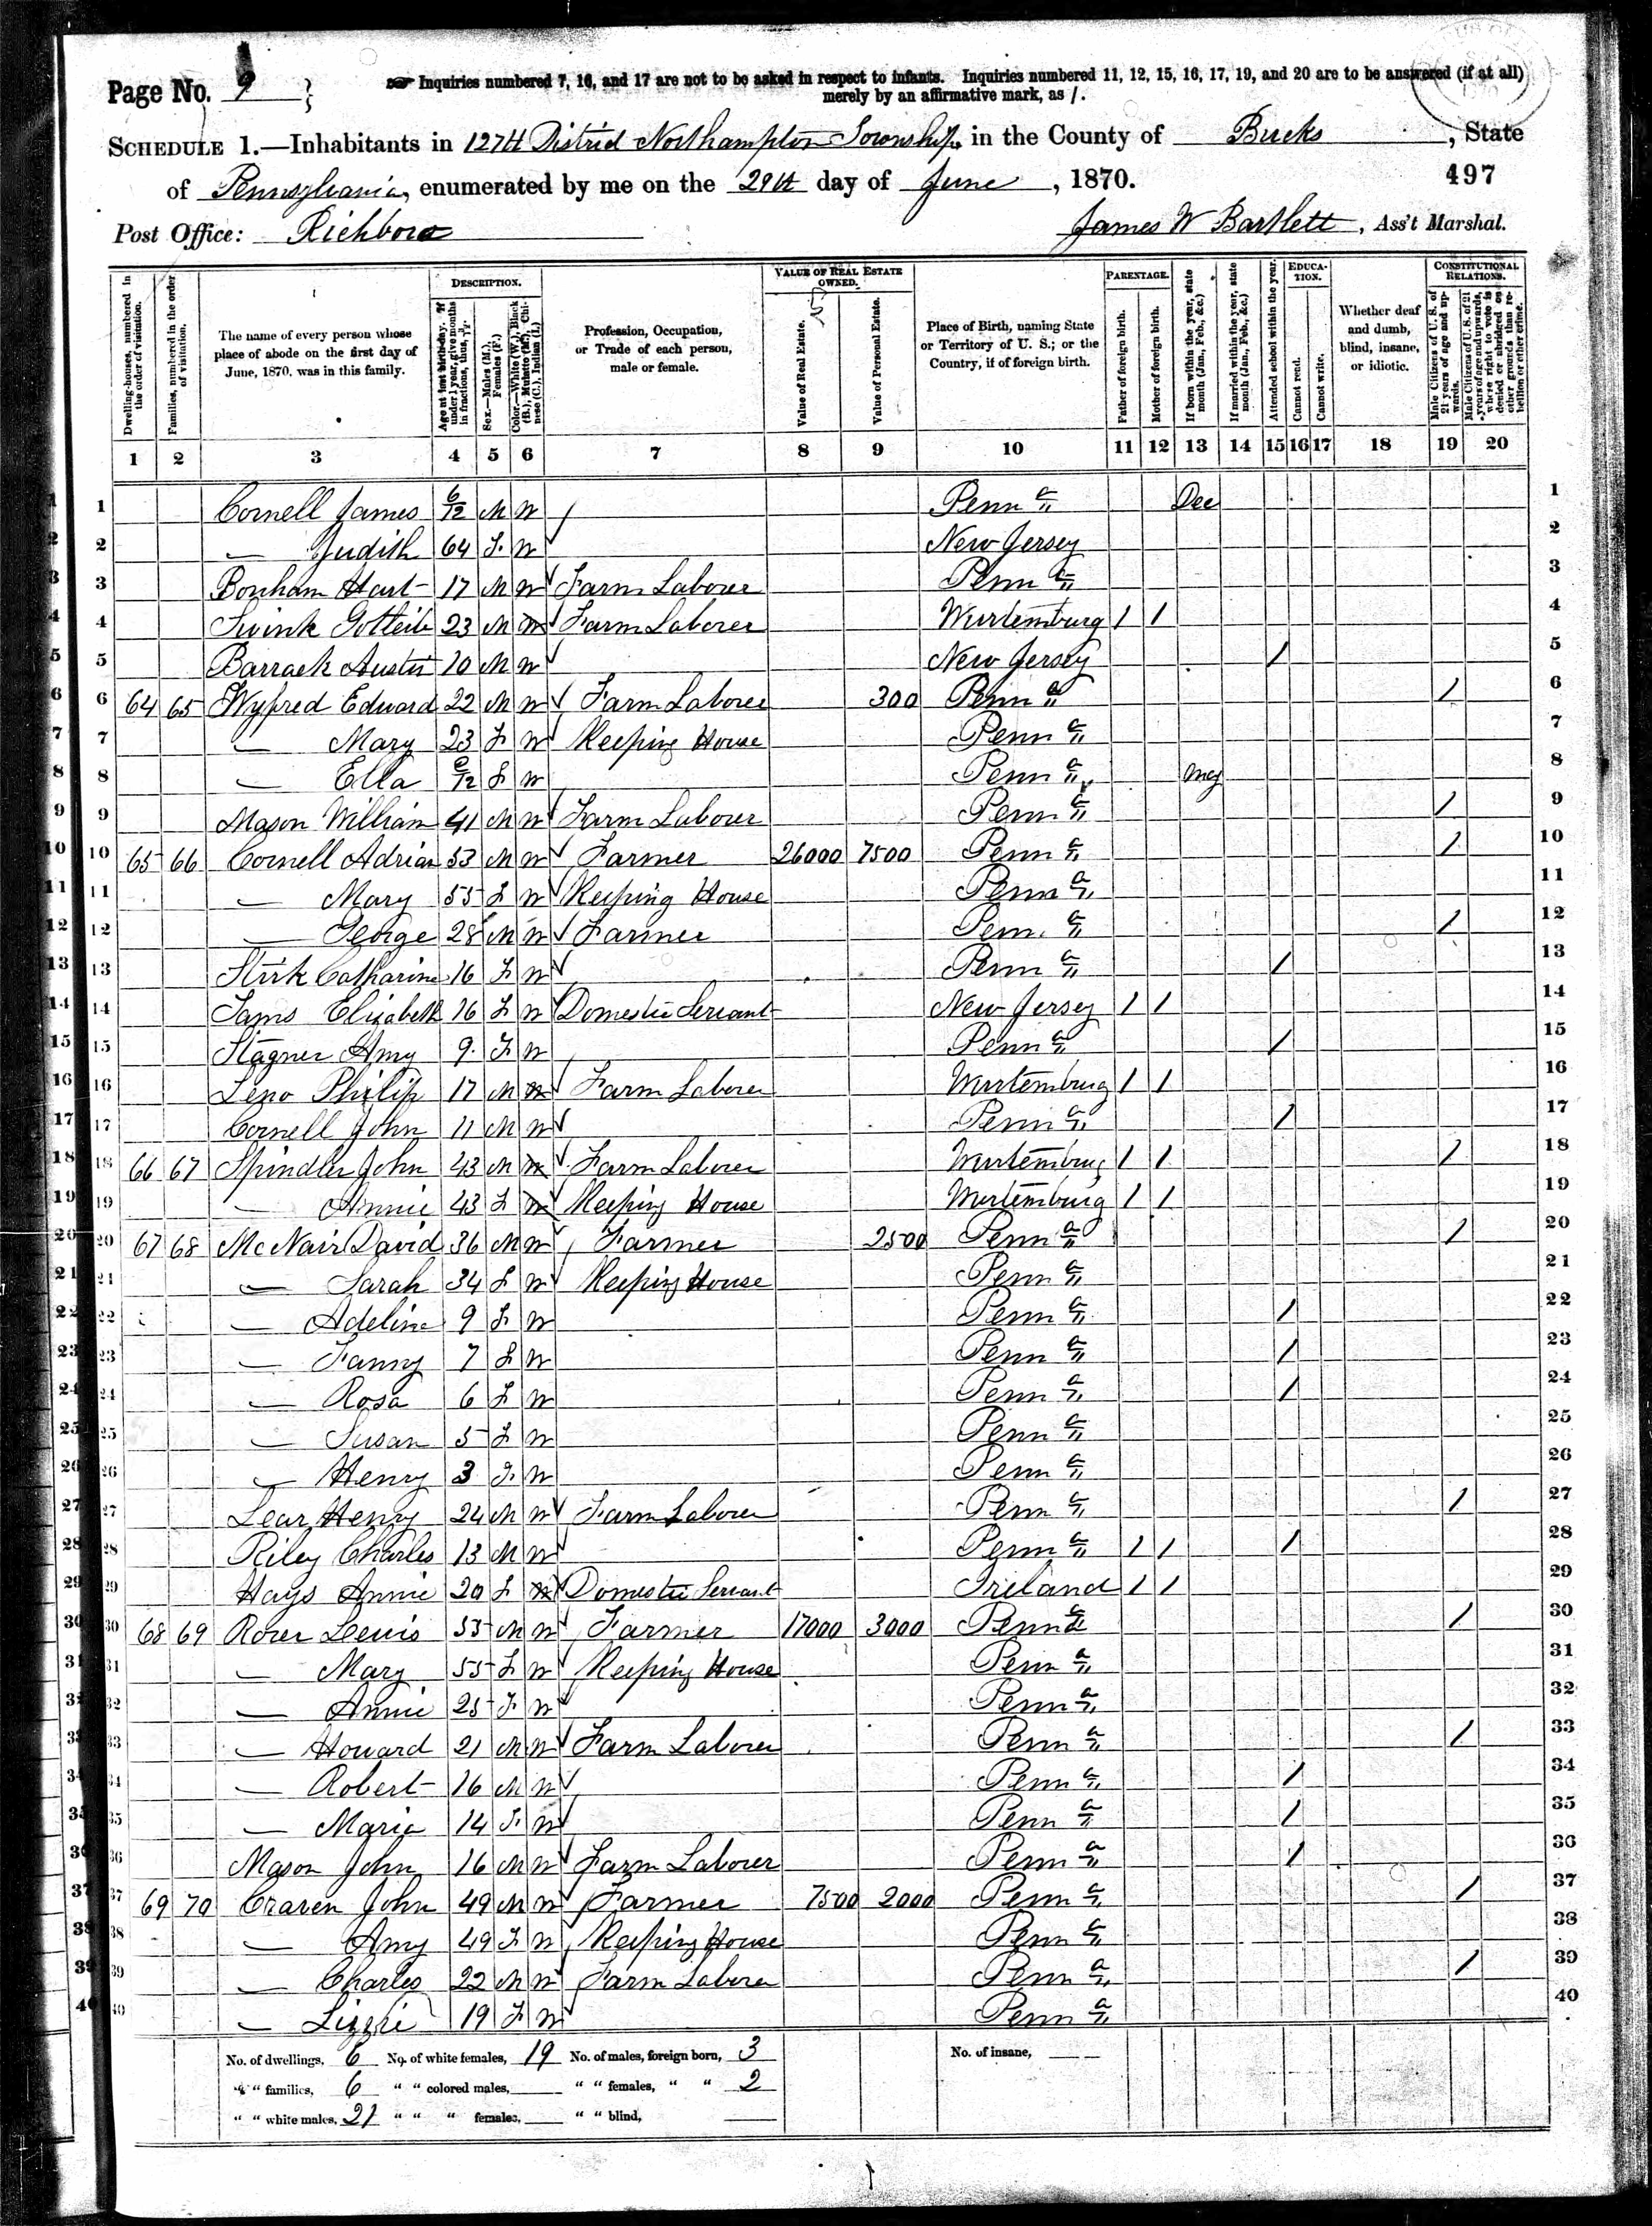 Page No. 9
Inquiries numbered 7, 16, and 17 are not to be asked in respect to infants. Inquiries numbered 11, 12, 15, 16, 17, 19, and 20 are to be answered (if at all)
merely by an affirmative mark, as /.
SCHEDULE 1.—Inhabitants in 127th District Northampton Township, in the County of Bucks, State
of Pennsylvania, enumerated by me on the 29th day of June, 1870. 497
Post Office: Richboro James W Bartlett, Ass't Marshal.
Dwelling-houses, numbered in the order of visitation.
Families, numbered in the order of visitation.
The name of every person whose place of abode on the first day of June, 1870, was in this family.
DESCRIPTION.
Age at last birth-day. If under 1 year, give months in fractions, thus, 3/12.
Sex.—Males (M.), Females (F.)
Color.—White (W.), Black (B.), Mulatto (M.), Chinese (C.), Indian (I.)
Profession, Occupation, or Trade of each person, male or female.
VALUE OF REAL ESTATE OWNED.
Value of Real Estate.
Value of Personal Estate.
Place of Birth, naming State or Territory of U. S.; or the Country, if of foreign birth.
PARENTAGE.
Father of foreign birth.
Mother of foreign birth.
If born within the year, state month (Jan., Feb., &c.)
If married within the year, state month (Jan., Feb., &c.)
EDUCATION.
Attended school within the year.
Cannot read.
Cannot write.
Whether deaf and dumb, blind, insane, or idiotic.
CONSTITUTIONAL RELATIONS.
Male Citizens of U. S. of 21 years of age and upwards.
Male Citizens of U. S. of 21 years of age and upwards, whose right to vote is denied or abridged on other grounds than rebellion or other crime.
1 2 3 4 5 6 7 8 9 10 11 12 13 14 15 16 17 18 19 20
1 Cornell James 6/12 M W Penn a Dec 1
2 — Judith 64 F. W New Jersey 2
3 Bonham Hart 17 M W Farm Laborer Penn a 3
4 Swink Gotleib 23 M W Farm Laborer Wurtemburg / / 4
5 Barrack Austin 10 M W New Jersey / 5
6 64 65 Wyfred Edward 22 M W Farm Laborer 300 Penn a / 6
7 — Mary 23 F W Keeping House Penn a 7
8 — Ella /12 F W Penn a 8
9 Mason William 41 M W Farm Laborer Penn a / 9
10 65 66 Cornell Adrian 53 M W Farmer 26000 7500 Penn a / 10
11 — Mary 55 F W Keeping House Penn a 11
12 — George 28 M W Farmer Penn. a / 12
13 Stirk Catharine 16 F W Penn a / 13
14 Sams Elizabeth 16 F W Domestic Servant New Jersey / / 14
15 Stagner Amy 9. F W Penn a / 15
16 Leno Philip 17 M W Farm Laborer Wurtemburg / / 16
17 Cornell John 11 M W Penn a / 17
18 66 67 Spindler John 43 M W Farm Laborer Wurtemburg / / / 18
19 — Annie 43 F W Keeping House Wurtemburg / / 19
20 67 68 McNair David 36 M W Farmer 2500 Penn a / 20
21 — Sarah 34 F W Keeping House Penn a 21
22 — Adeline 9 F W Penn a / 22
23 — Fanny 7 F W Penn a / 23
24 — Rosa 6 F W Penn a / 24
25 — Susan 5 F W Penn a 25
26 — Henry 3 F. W Penn a 26
27 Lear Henry 24 M W Farm Laborer Penn a / 27
28 Riley Charles 13 M W Penn a / / / 28
29 Hays Annie 20 F W Domestic Servant Ireland / / 29
30 68 69 Rorer Lewis 55 M W Farmer 17000 3000 Penn a / 30
31 — Mary 55 F W Keeping House Penn a 31
32 — Annie 25 F. W Penn a 32
33 — Howard 21 M W Farm Laborer Penn a / 33
34 — Robert 16 M W Penn a / 34
35 — Maria 14 F. W Penn a / 35
36 Mason John 16 M W Farm Laborer Penn a / 36
37 69 70 Craven John 49 M W Farmer 7500 2000 Penn a / 37
38 — Amy 49 F W Keeping House Penn a 38
39 — Charles 22 M W Farm Laborer Penn a / 39
40 — Lizzie 19 F W Penn a 40
No. of dwellings, 6 No. of white females, 19 No. of males, foreign born, 3 No. of insane,
" " families, 6 " " colored males, " " females, " " 2
" " white males, 21 " " " females, " " blind,